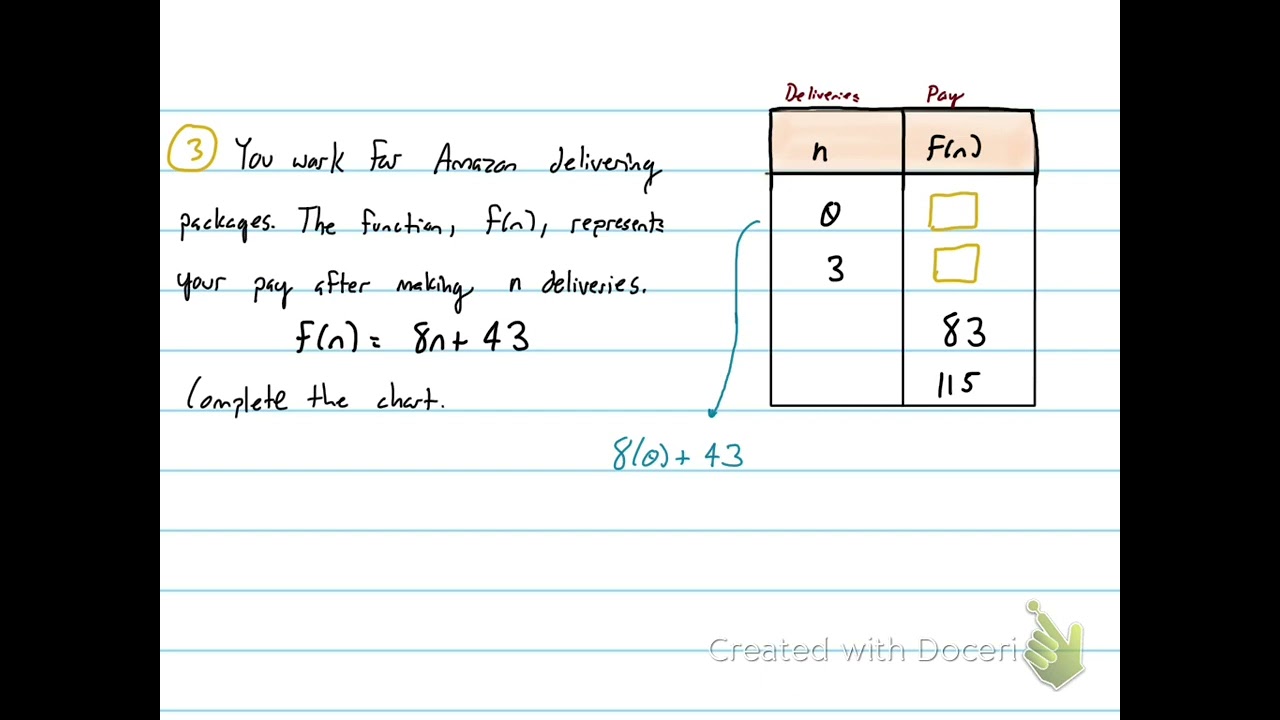 Deliveries Pay
n f(n)
0
3
83
115
3 You work for Amazon delivering
packages. The function, f(n), represents
your pay after making n deliveries.
f(n) = 8n + 43
Complete the chart.
8(0) + 43
Created with Doceri